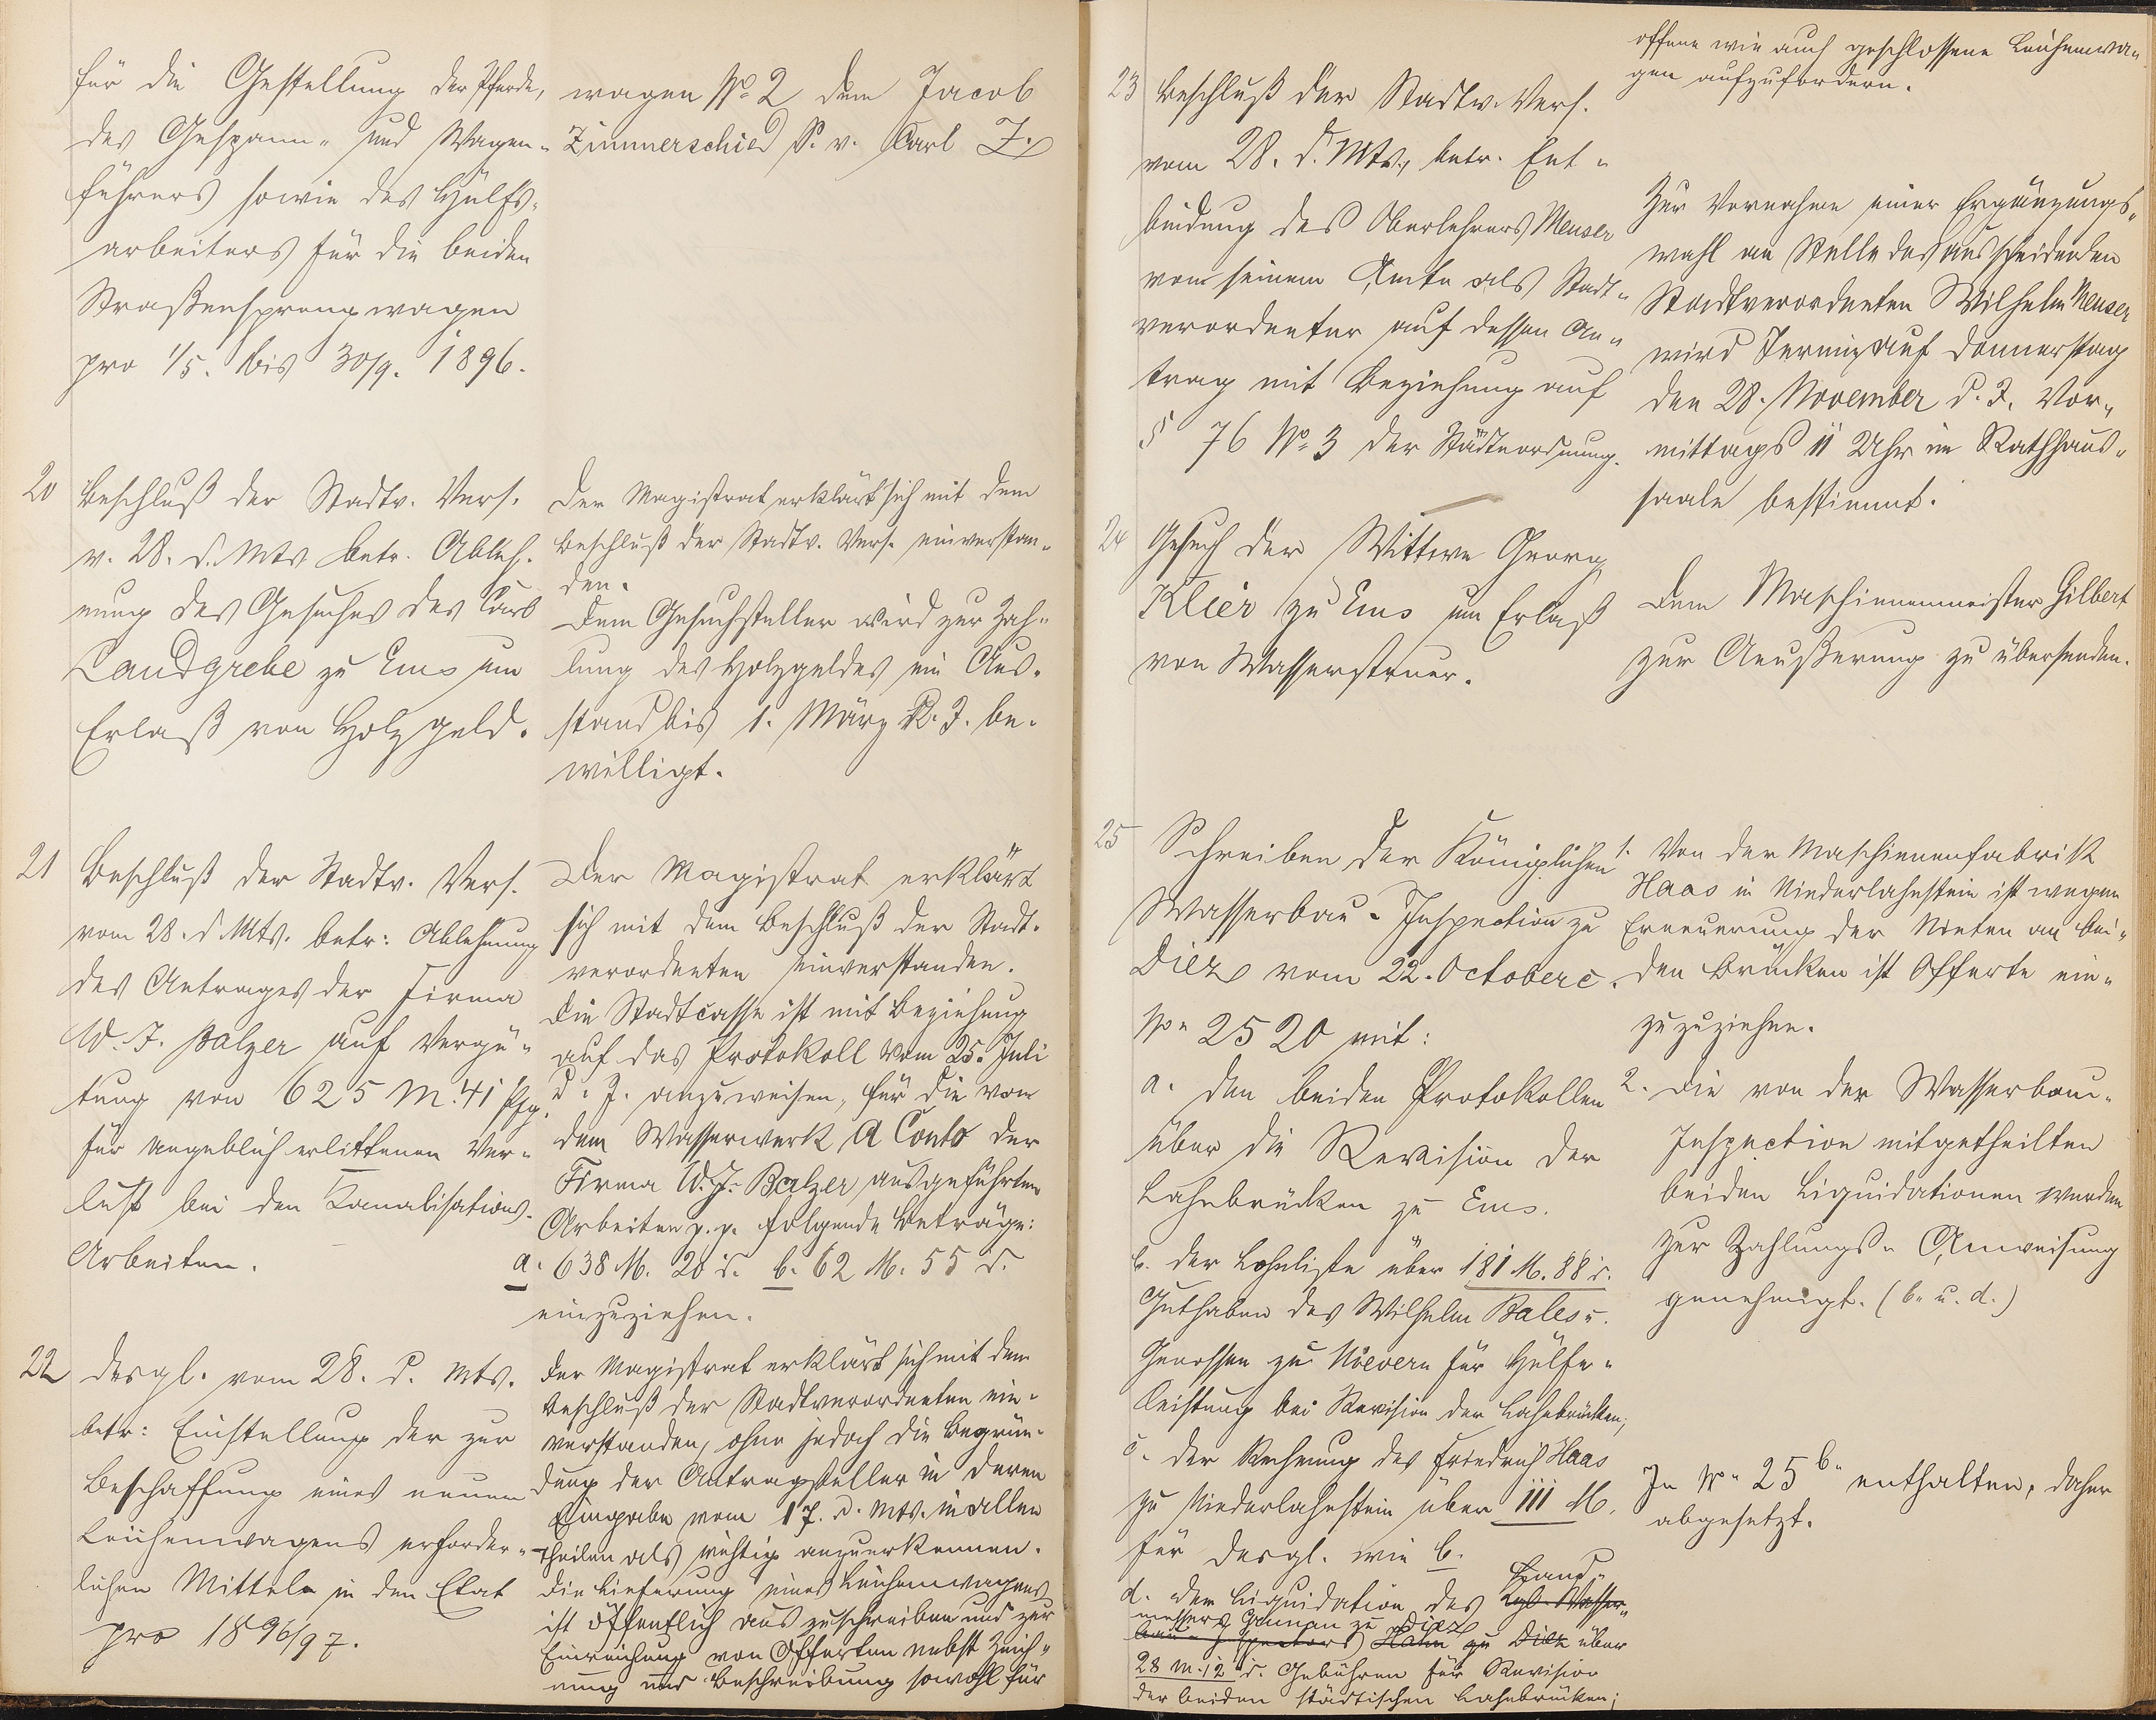 für die Gestellung der Pferde,
des Gespann- und Wagen-
führers sowie des Hülfs-
arbeiters für die beiden
Straßensprengwagen
pro 1/5. bis 30/9. 1896.
wagen No 2 dem Jacob
Zimmerschied S. v. Carl Z.
20
Beschluß der Stadtv. Vers.
v. 28. d. Mts betr. Ableh-
nung des Gesuches des Carl
Landgrebe zu Ems um
Erlaß von Holzgeld.
Der Magistrat erklärt sich mit dem
Beschluß der Stadtv. Vers. einverstan-
den.
Dem Gesuchsteller wird zur Zah-
lung des Holzgeldes ein Aus-
stand bis 1. März k. J. be-
willigt.
21
Beschluß der Stadtv. Vers.
vom 28. d. Mts. betr: Ablehnung
des Antrages der Firma
W. J. Balzer auf Vergü-
tung von 625 M. 41 Pfg.
für angeblich erlittenen Ver-
lust bei den Kanalisations-
Arbeiten.
Der Magistrat erklärt
sich mit dem Beschluß der Stadt-
verordneten einverstanden.
Die Stadtcasse ist mit Beziehung
auf das Protokoll vom 25. Juli
d. J. anzuweisen, für die von
dem Wasserwerk A Conto der
Firma W. J. Balzer ausgeführten
Arbeiten p. p. folgende Beträge:
a. 638 M. 20 d. b. 62 M. 55 d.
einzuziehen.
22
desgl. vom 28. d. Mts.
betr: Einstellung der zur
Beschaffung eines neuen
Leichenwagens erforder-
lichen Mitteln in den Etat
pro 1896/97.
Der Magistrat erklärt sich mit dem
Beschluß der Stadtverordneten ein-
verstanden, ohne jedoch die Begrün-
dung der Antragsteller in deren
Eingabe vom 17. d. Mts. in allen
Theilen als richtig anzuerkennen.
Die Lieferung eines Leichenwagens
ist öffentlich auszuschreiben und zur
Einreichung von Offerten nebst Zeich-
nung und Beschreibung sowohl für
offene wie auch geschlossene Leichenwa-
gen aufzufordern.
23
Beschluß der Stadtv. Vers.
vom 28. d. Mts., betr. Ent-
bindung des Oberlehrers Meuser
von seinem Amte als Stadt-
verordneter auf dessen An-
trag mit Beziehung auf
§ 76 No 3 der Städteordnung.
Zur Vornahme einer Ergänzungs-
wahl an Stelle des ausscheidenden
Stadtverordneten Wilhelm Meuser
wird Termin auf Donnerstag
den 28. November d. J. Vor-
mittags 11 Uhr im Rathhaus-
saale bestimmt.
24
Gesuch der Wittwe Georg
Klier zu Ems um Erlaß
von Wassersteuer.
Dem Maschinenmeister Gilbert
zur Aeußerung zu übersenden.
25
Schreiben der Königlichen
Wasserbau-Inspection zu
Diez vom 22. October c.
No 2520 mit:
a. den beiden Protokollen
über die Revision der
Lahnbrücken zu Ems.
b. der Lohnliste über 181 M. 88 d.
Guthaben des Wilhelm Bales u.
Genossen zu Nievern für Hülfe-
leistung bei Revision der Lahnbrücken;
c. der Rechnung des Friedrich Haas
zu Niederlahnstein über 111 M.
für desgl. wie b.
Land-
d. der Liquidation des Kgl. Wasser-
messers zu Diez
bau-Inspectors Hahn zu Diez über
28 M. 12 d. Gebühren für Revision
der beiden städtischen Lahnbrücken;
1. Von der Maschinenfabrik
Haas in Niederlahnstein ist wegen
Erneuerung der Nieten an bei-
den Brücken ist Offerte ein-
zuzuziehen.
2. Die von der Wasserbau-
Inspection mitgetheilten
beiden Liquidationen werden
zur Zahlungs-Anweisung
genehmigt. (b. u. d.)
In No 25 b. enthalten, daher
abgesetzt.